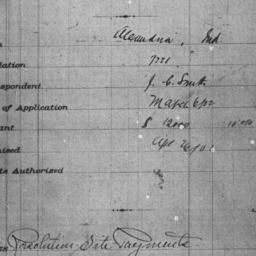 Alexandria, Ind
lation
7221
spondent
J. C. Smith
of Application
March 6/02
ant
$ 12000
ised
Apr 26/02
ts Authorized
Resolution Site Payments